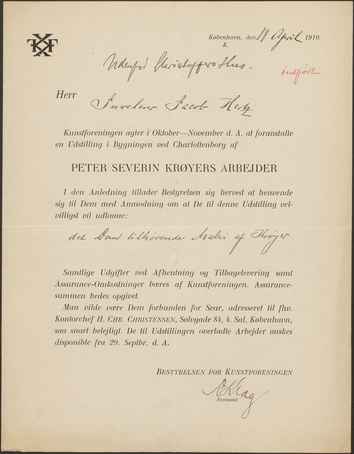 København, den 18 April 1910.
K.
indført
Herr Juveler Jacob Hertz
Kunstforeningen agter i Oktober—November d. A. at foranstalte
en Udstilling i Bygningen ved Charlottenborg af
PETER SEVERIN KRØYERS ARBEJDER
I den Anledning tillader Bestyrelsen sig herved at henvende
sig til Dem med Anmodning om at De til denne Udstilling vel-
villigst vil udlaane:
det Dem tilhørende Maleri af Krøyer
Samtlige Udgifter ved Afhentning og Tilbagelevering samt
Assurance-Omkostninger bæres af Kunstforeningen. Assurance-
summen bedes opgivet.
Man vilde være Dem forbunden for Svar, adresseret til fhv.
Kontorchef H. CHR. CHRISTENSEN, Sølvgade 84, 4. Sal, København,
saa snart belejligt. De til Udstillingen overladte Arbejder ønskes
disponible fra 29. Septbr. d. A.
BESTYRELSEN FOR KUNSTFORENINGEN
Formand